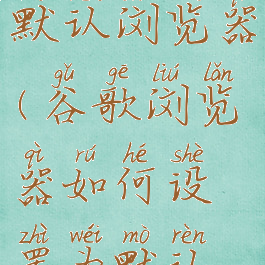 默认浏览器
gǔ gē liú lǎn
(谷歌浏览
qì rú hé shè
器如何设
zhì wéi mò rèn
置为默认